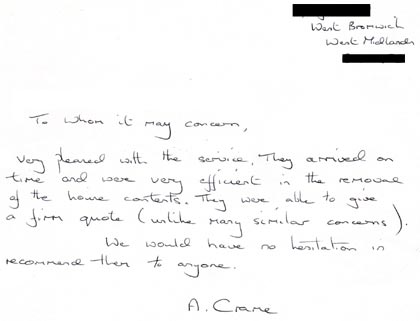 West Bromwich
West Midlands
To whom it may concern,
Very pleased with the service. They arrived on
time and were very efficient in the removal
of the home contents. They were able to give
a firm quote (unlike many similar concerns).
We would have no hesitation in
recommend them to anyone.
A. Crane